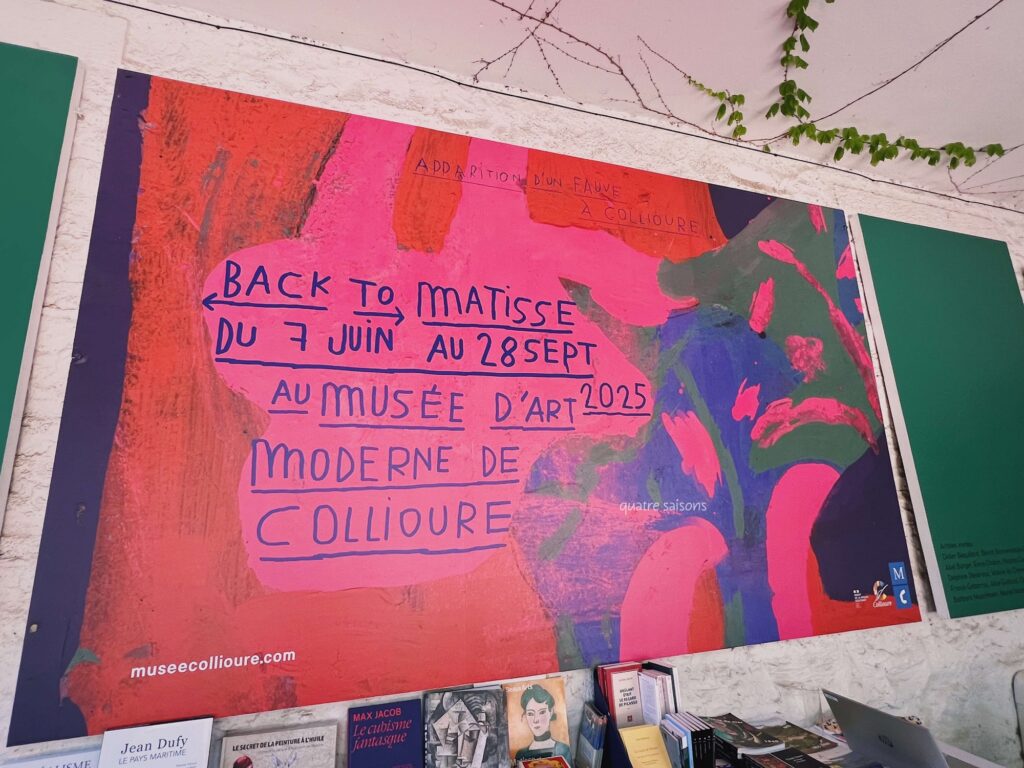 APPARITION D'UN FAUVE
À COLLIOURE
BACK TO MATISSE
DU 7 JUIN AU 28 SEPT
2025
AU MUSÉE D'ART
MODERNE DE
COLLIOURE
quatre saisons
museecollioure.com
Collioure
M
C
Artistes invités
Jean Dufy
LE PAYS MARITIME
LE SECRET DE LA PEINTURE À L'HUILE
MAX JACOB
Le cubisme
fantasque
Beaux Arts